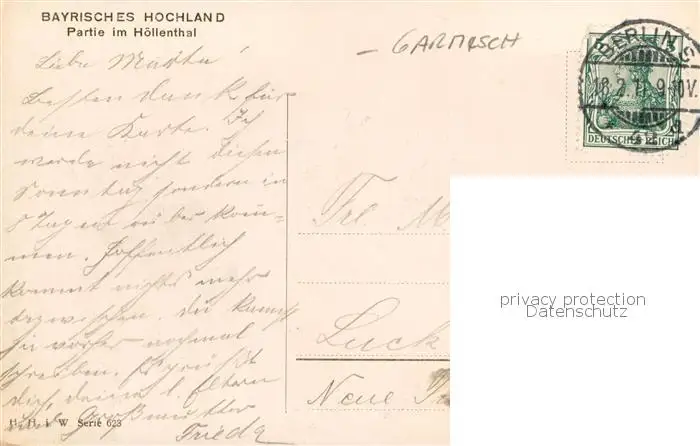 BAYRISCHES HOCHLAND
Partie im Höllenthal
– GARMISCH
BERLIN S
18.2.11. 9-10V.
DEUTSCHES REICH
Liebe Marta!
Besten Dank für
deine Karte. Ich
werde nicht diesen
Sonntag sondern in
8 Tagen rüber kom-
men. Hoffentlich
kommt nichts mehr
dazwischen. Du kannst
ja vorher nochmal
schreiben. Es grüßt
dich, deine l. Eltern
und Großmutter
Frieda
Frl. M
Luck
Neue
H. H. i. W. Serie 623
privacy protection
Datenschutz